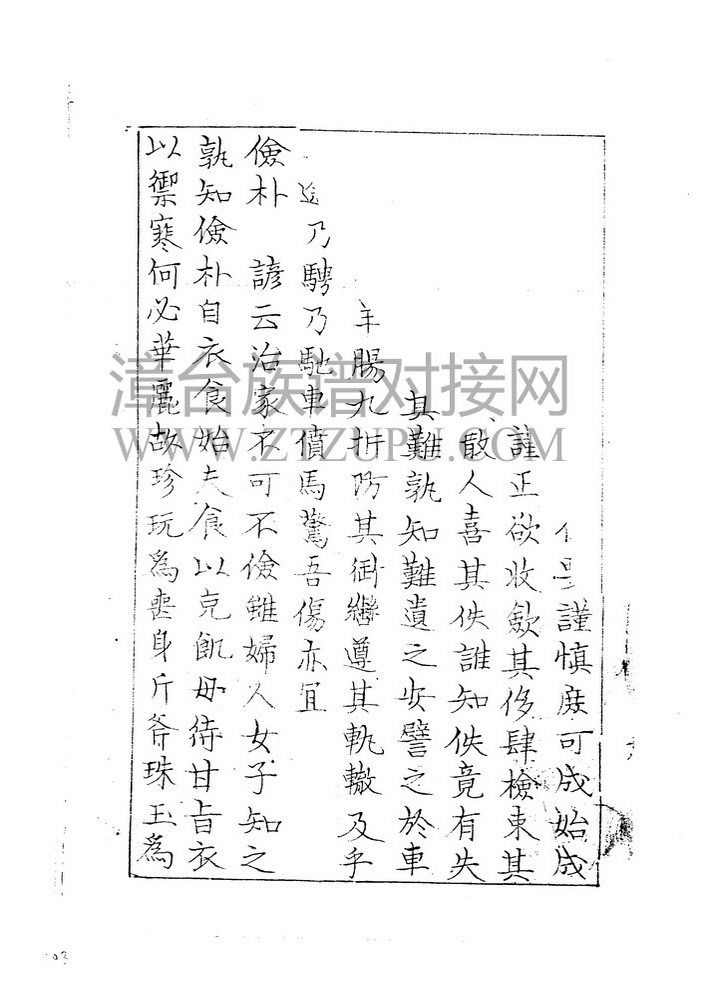 謹慎庶可成始成
謹正欲收歛其侈肆檢束其
散人喜其佚誰知佚竟有失
其難孰知難遺之安譬之於車
羊腸九折防其銜繼遵其軌轍及乎
乃騁乃馳車僨馬驚吾傷亦宜
儉朴 諺云治家不可不儉雖婦人女子知之
孰知儉朴自衣食始夫食以充飢毋待甘旨衣
以禦寒何必華麗故珍玩為喪身斤斧珠玉為
漳台族谱对接网
WWW.ZTZUPU.COM